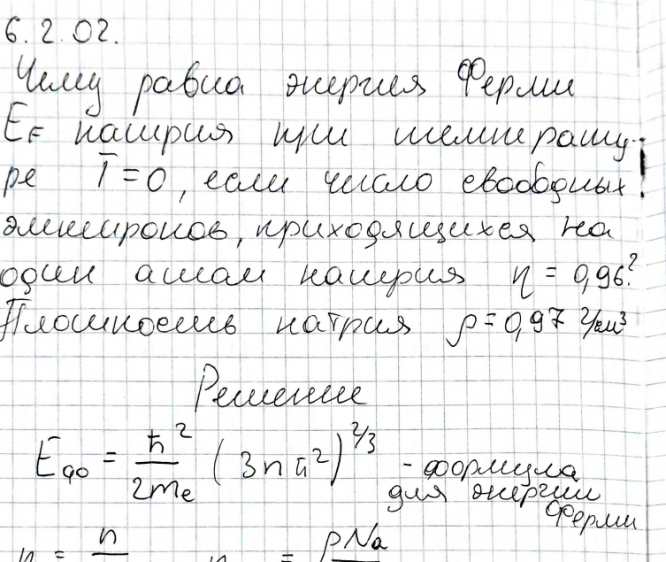 6.2.02.
Чему равна энергия Ферми
E_F натрия при температу-
ре T=0, если число свободных
электронов, приходящихся на
один атом натрия η = 0,96?
Плотность натрия ρ=0,97 г/см³
Решение
E_{фо} = ħ²/2mₑ (3nπ²)^{2/3} - формула
для энергии
Ферми
n = n ρNa